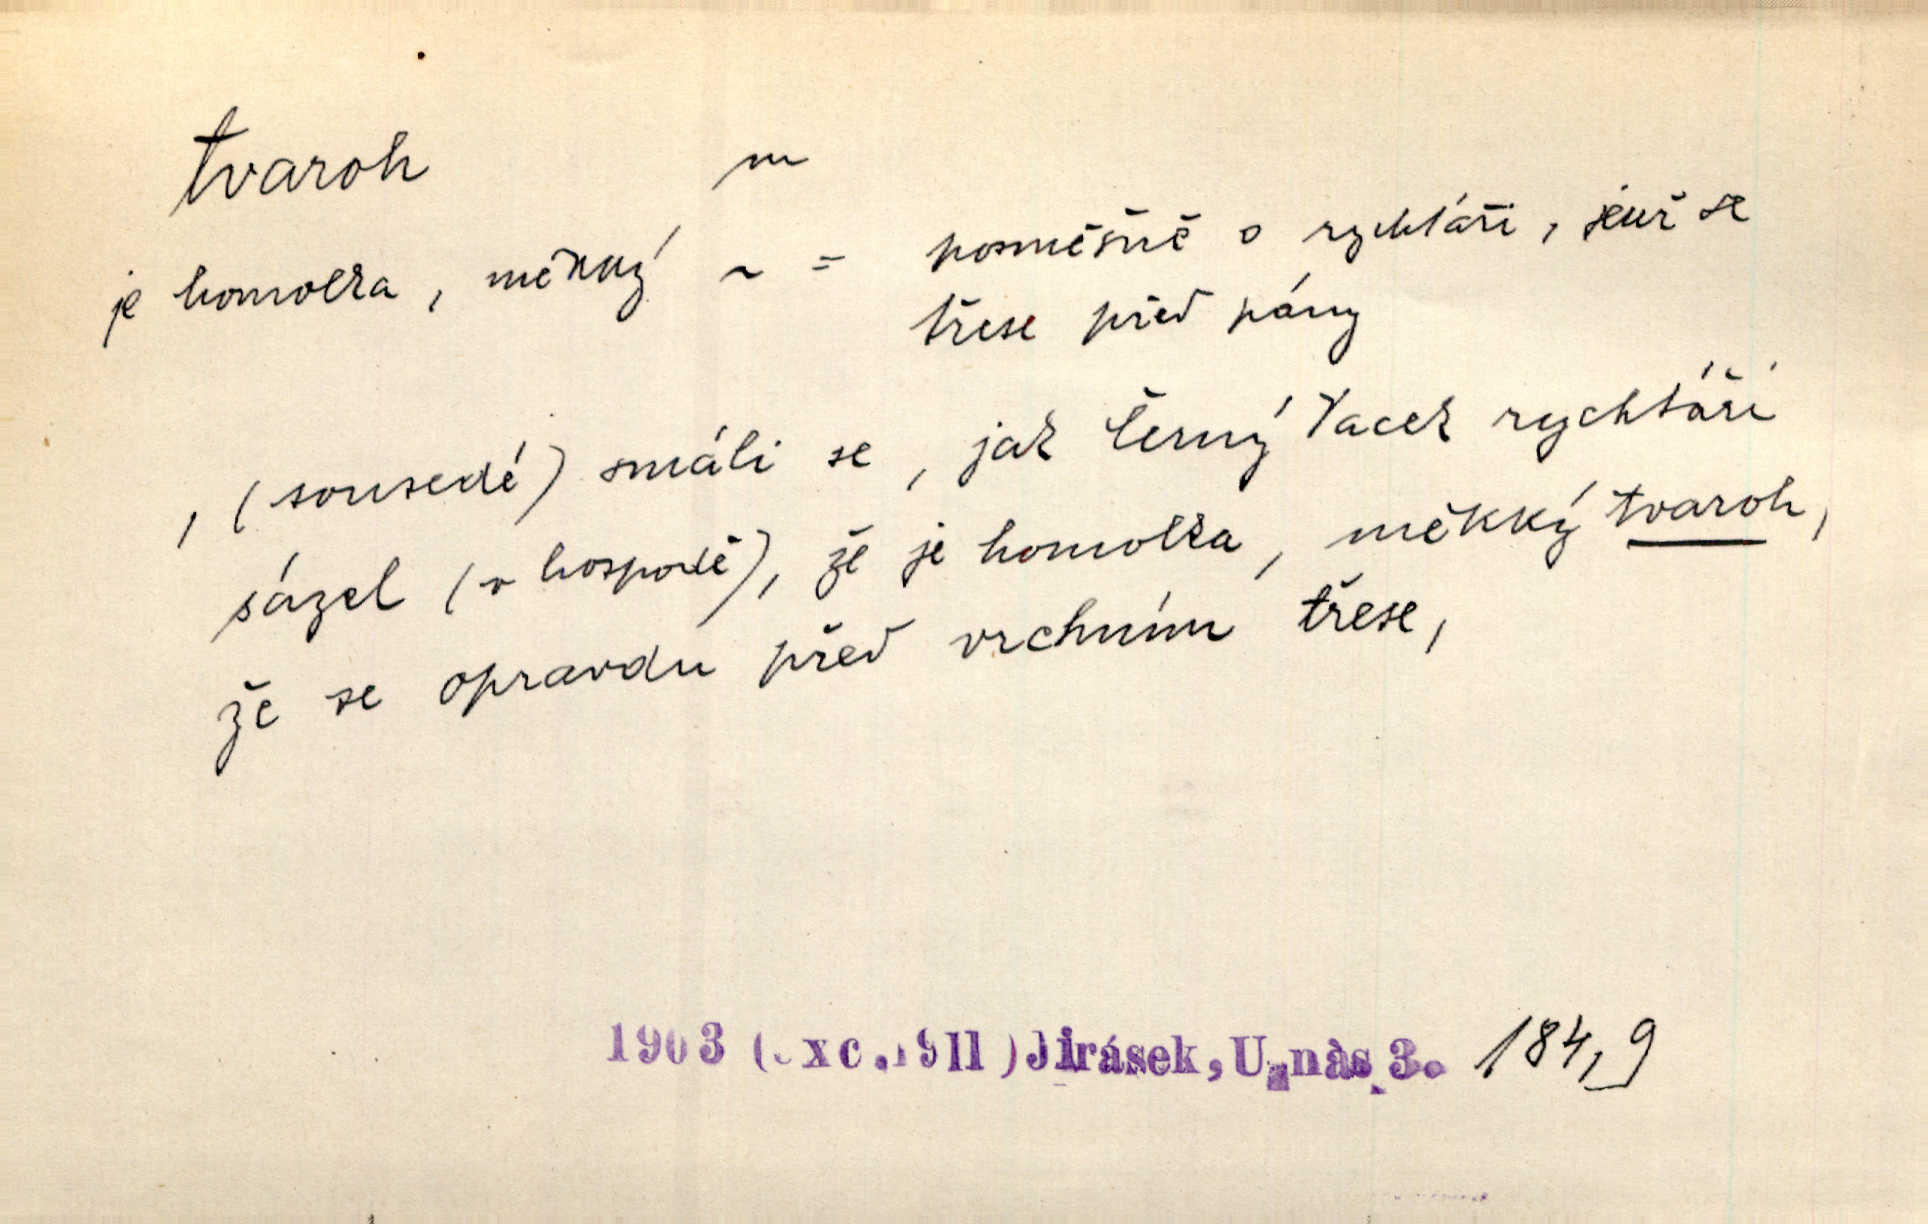 tvaroh m
je homolka, měkký ~ = posměšně o rychtáři, jenž se
třese před pány
, (sousedé) smáli se, jak černý Vacek rychtáři
sázel (v hospodě), že je homolka, měkký tvaroh,
že se opravdu před vrchním třese,
1903 (exc. 1911) Jirásek, U nàs 3. 184,9